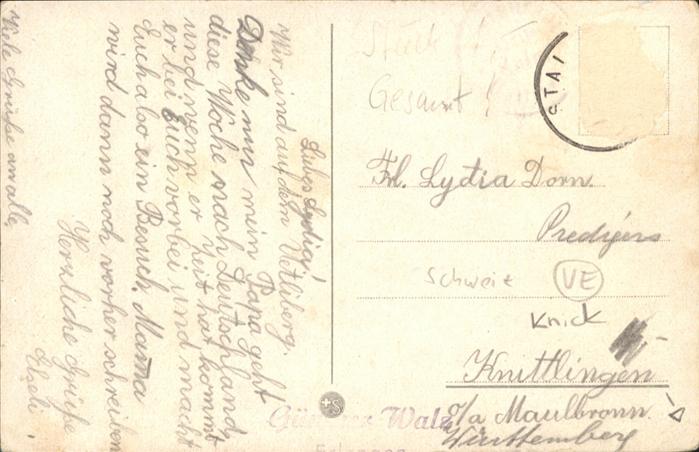 Liebes Lydia!
Wir sind auf dem Uetliberg.
Denke nur mein Papa geht
diese Woche nach Deutschland,
und wenn er Zeit hat kommt
er bei Euch vorbei und macht
Euch also ein Besuch. Mama
wird dann noch vorher schreiben
Herzliche Grüße
Elseli.
Viele Grüße an alle,
Stück
Gesamt
STAI
Frl. Lydia Dorn.
Predigers
Schweiz VE
Knick
Knittlingen
o/a Maulbronn
Württemberg
Walz